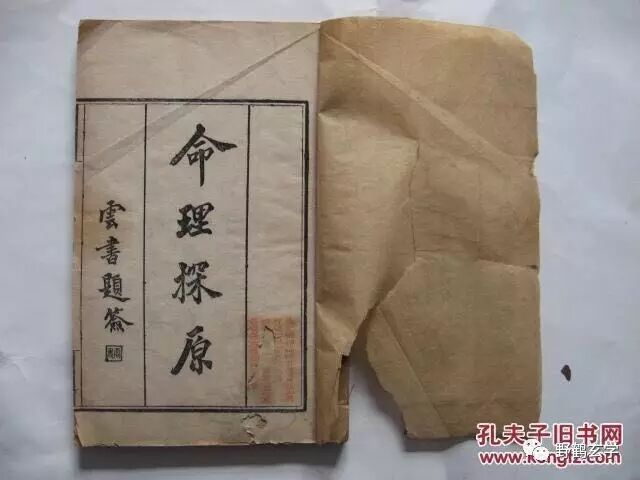 命理探原
雲書題簽
孔夫子旧书网
www.kongfz.com
野鹤玄学